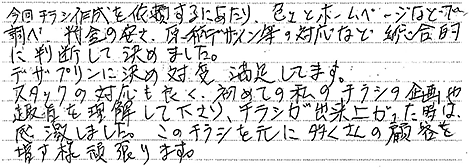 今回チラシ作成を依頼するにあたり、色々とホームページなどで
調べ、料金の安さ、原稿デザイン等の対応など総合的
に判断して決めました。
デザプリンに決め対変満足してます。
スタッフの対応も良く、初めての私のチラシの企画や
趣旨を理解して下さり、チラシが出来上がった時は、
感激しました。このチラシを元に多くさんの顧客を
増す様頑張ります。